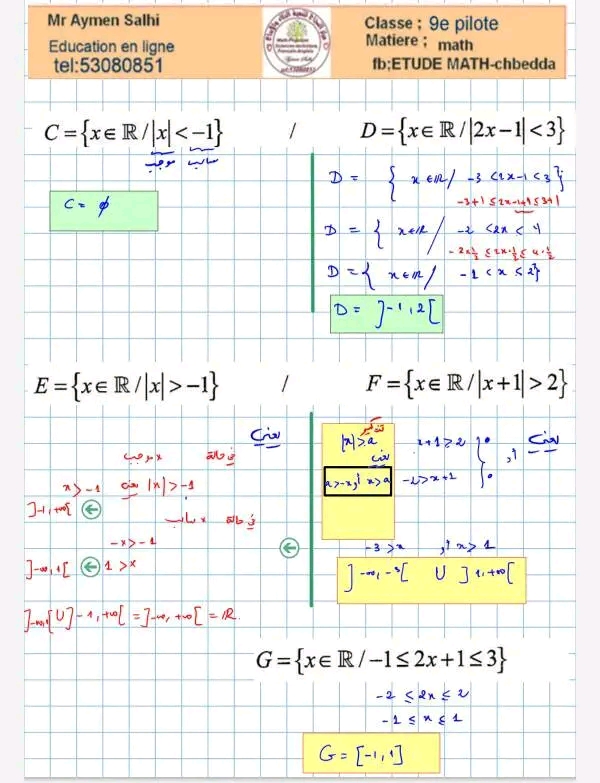 Mr Aymen Salhi
Education en ligne
tel:53080851
Classe ; 9e pilote
Matiere ; math
fb;ETUDE MATH-chbedda
C={x∈ℝ/|x|<-1} / D={x∈ℝ/|2x-1|<3}
موجب سالب
C = ϕ
D = { x∈ℝ/ -3 <2x-1 <3}
-3+1 ≤ 2x-1+1 ≤ 3+1
D = { x∈ℝ/ -2 <2x < 4
-2×½ ≤ 2x·½ ≤ 4·½
D = { x∈ℝ/ -1 < x ≤ 2}
D = ]-1,2[
E={x∈ℝ/|x|>-1} / F={x∈ℝ/|x+1|>2}
يعني
في حالة x موجب
x>-1 يعني |x|>-1
]-1,+∞[
في حالة x سالب
-x>-1
]-∞,1[ 1>x
]-∞,1[ U ]-1,+∞[ = ]-∞,+∞[ = ℝ.
تذكير
|x|>a
يعني
يعني x+1≥2
أو -2>x+1
-3>x أو x>1
]-∞,-3[ U ]1,+∞[
G={x∈ℝ/-1≤2x+1≤3}
-2 ≤ 2x ≤ 2
-1 ≤ x ≤ 1
G = [-1,1]